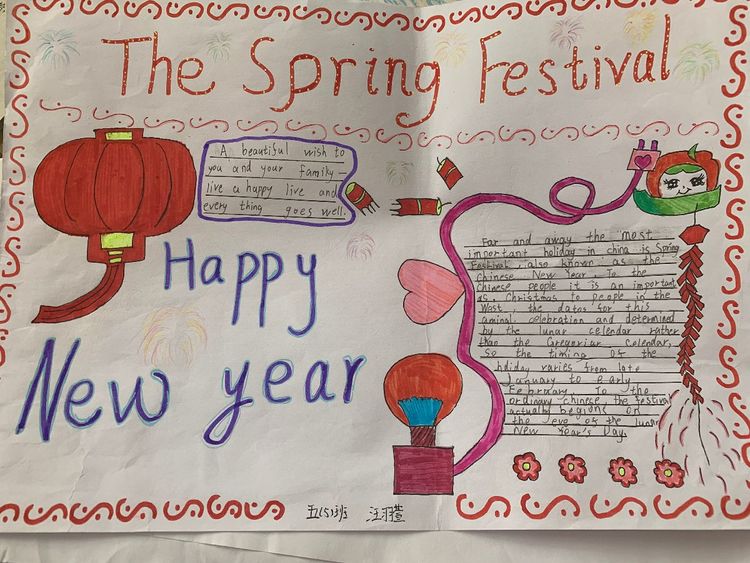 The Spring Festival
A beautiful wish to
you and your family—
live a happy live and
every thing goes well.
Happy
New year
Far and away the most
important holiday in china is Spring
Festival, also known as the
Chinese New Year. To the
Chinese people it is an important
as. Christmas to people in the
West. the dates for this
aminal celebration and determined
by the lunar celendar rather
than the Gregoriar Calendar,
So the timing of the
holiday varies from late
January to early
February To the
ordinary chinese the festival
actually begions on
the eve of the lunar
New Year's Day.
五(5)班